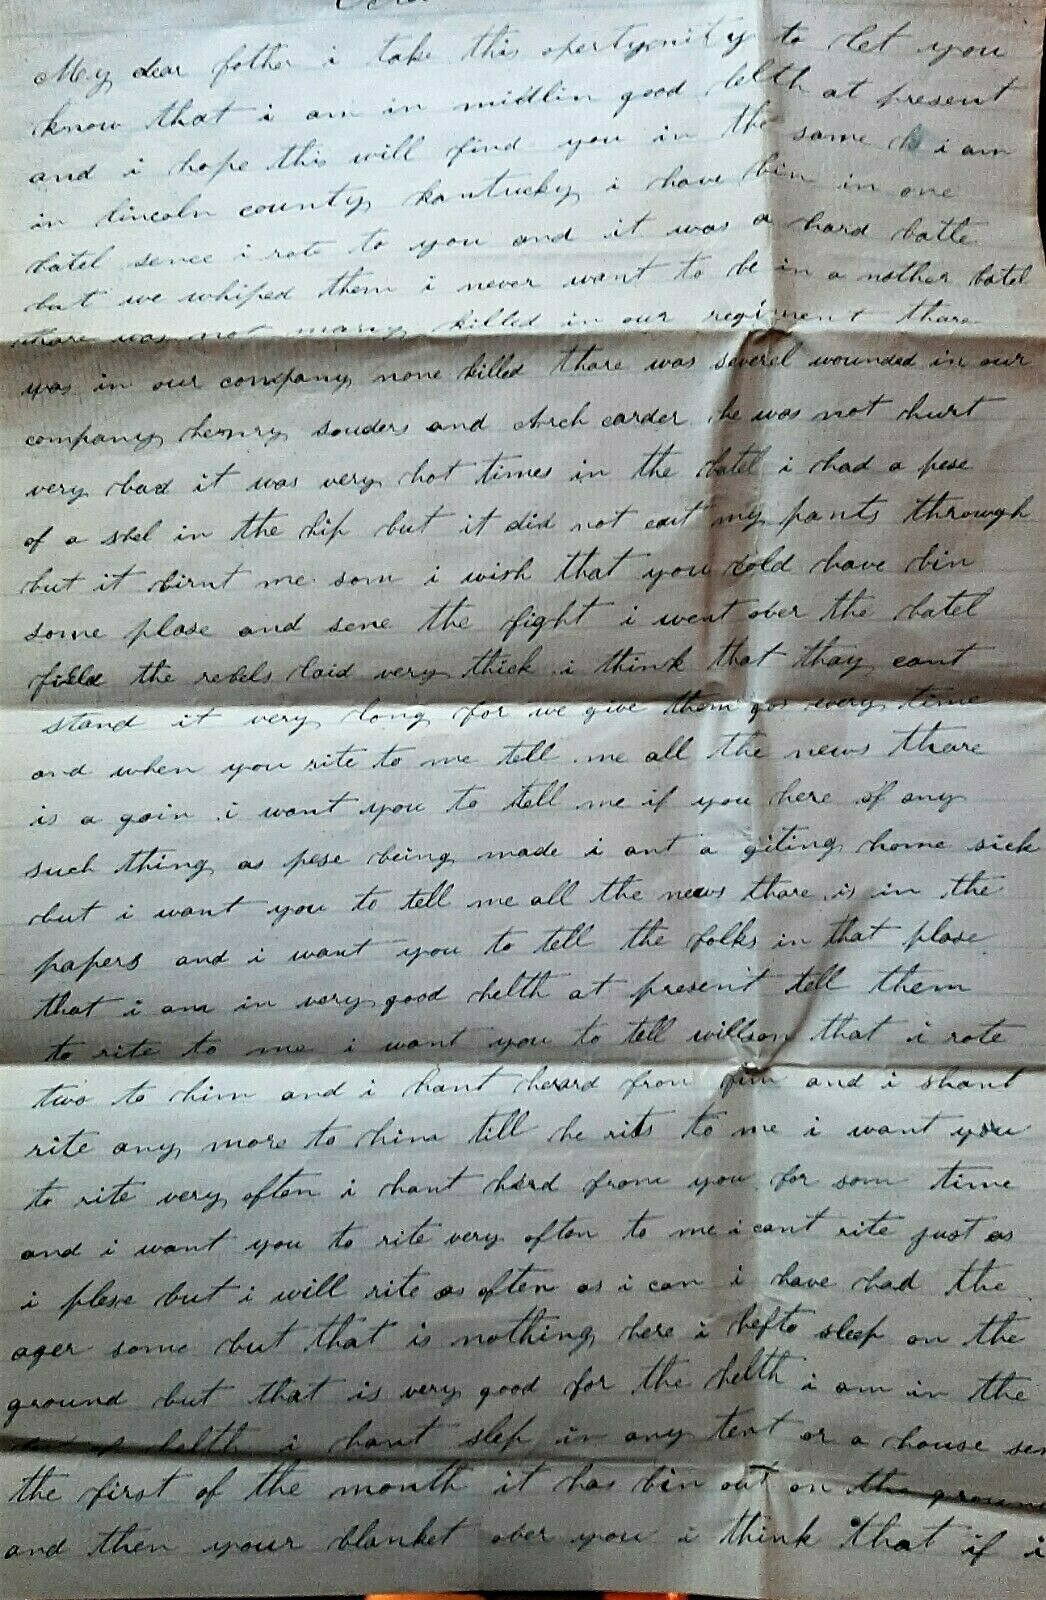 My dear father i take this opertyenity to let you
know that i am in midlin good helth at present
and i hope this will find you in the same i am
in lincoln county kantucky i have bin in one
batel sence i rote to you and it was a hard batle
but we whiped them i never want to be in a nother batel
thare was not many killed in our regiment thare
was in our company none killed thare was severel wounded in our
company henry souders and Arch carder he was not hurt
very bad it was very hot times in the batel i had a pese
of a shel in the hip but it did not cut my pants through
but it birnt me som i wish that you cold have bin
some plase and sene the fight i went over the batel
field the rebels laid very thick i think that thay cant
stand it very long for we give them gos every time
and when you rite to me tell me all the news thare
is a goin i want you to tell me if you here of any
such thing as pese being made i ant a giting home sick
but i want you to tell me all the news thare is in the
papers and i want you to tell the folks in that plase
that i am in very good helth at present tell them
to rite to me i want you to tell willson that i rote
two to him and i hant heard from him and i shant
rite any more to him till he rits to me i want you
to rite very often i hant herd from you for som time
and i want you to rite very often to me i cant rite just as
i plese but i will rite as often as i can i have had the
ager some but that is nothing here i hefto sleep on the
ground but that is very good for the helth i am in the
of helth i hant slep in any tent or a house sen
the first of the month it has bin out on the ground
and then your blanket over you i think that if i